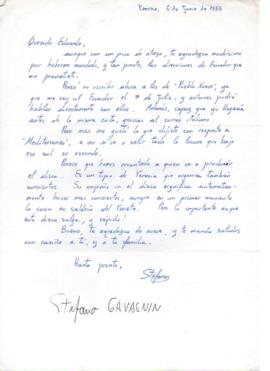 Venezia, 5 de Junio de 1983
Querido Eduardo,
aunque con un poco de atraso, te agradezco muchísimo
por haberme mandado, y tan pronto, las direcciones de Ecuador que
me prometiste.
Pero no escribo ahora a los de "Pueblo Nuevo", ya
que me voy al Ecuador el 7 de julio, y entonces podré
hablar directamente con ellos. Además, capaz que yo llegaría
antes de la misma carta, gracias al correo italiano.
Pero mas me gustó lo que dijiste con respecto a
"Mediterraneo", a ver si va a salir toda la locura que bajo
ese sol se esconde.
Parece que hemos encontrado a quien va a producir
el disco. Es un tipo de Venecia que organiza también
conciertos. Su empeño en el disco significa automatica-
mente hacer mas conciertos, aunque en un primer momento
la cosa no saldría del Veneto. Pero lo importante es que
este disco salga, y rápido!
Bueno, te agradezco de nuevo, y te mando saludos
con cariño a tí, y a tu familia.
Hasta pronto,
Stefano
Stefano GAVAGNIN